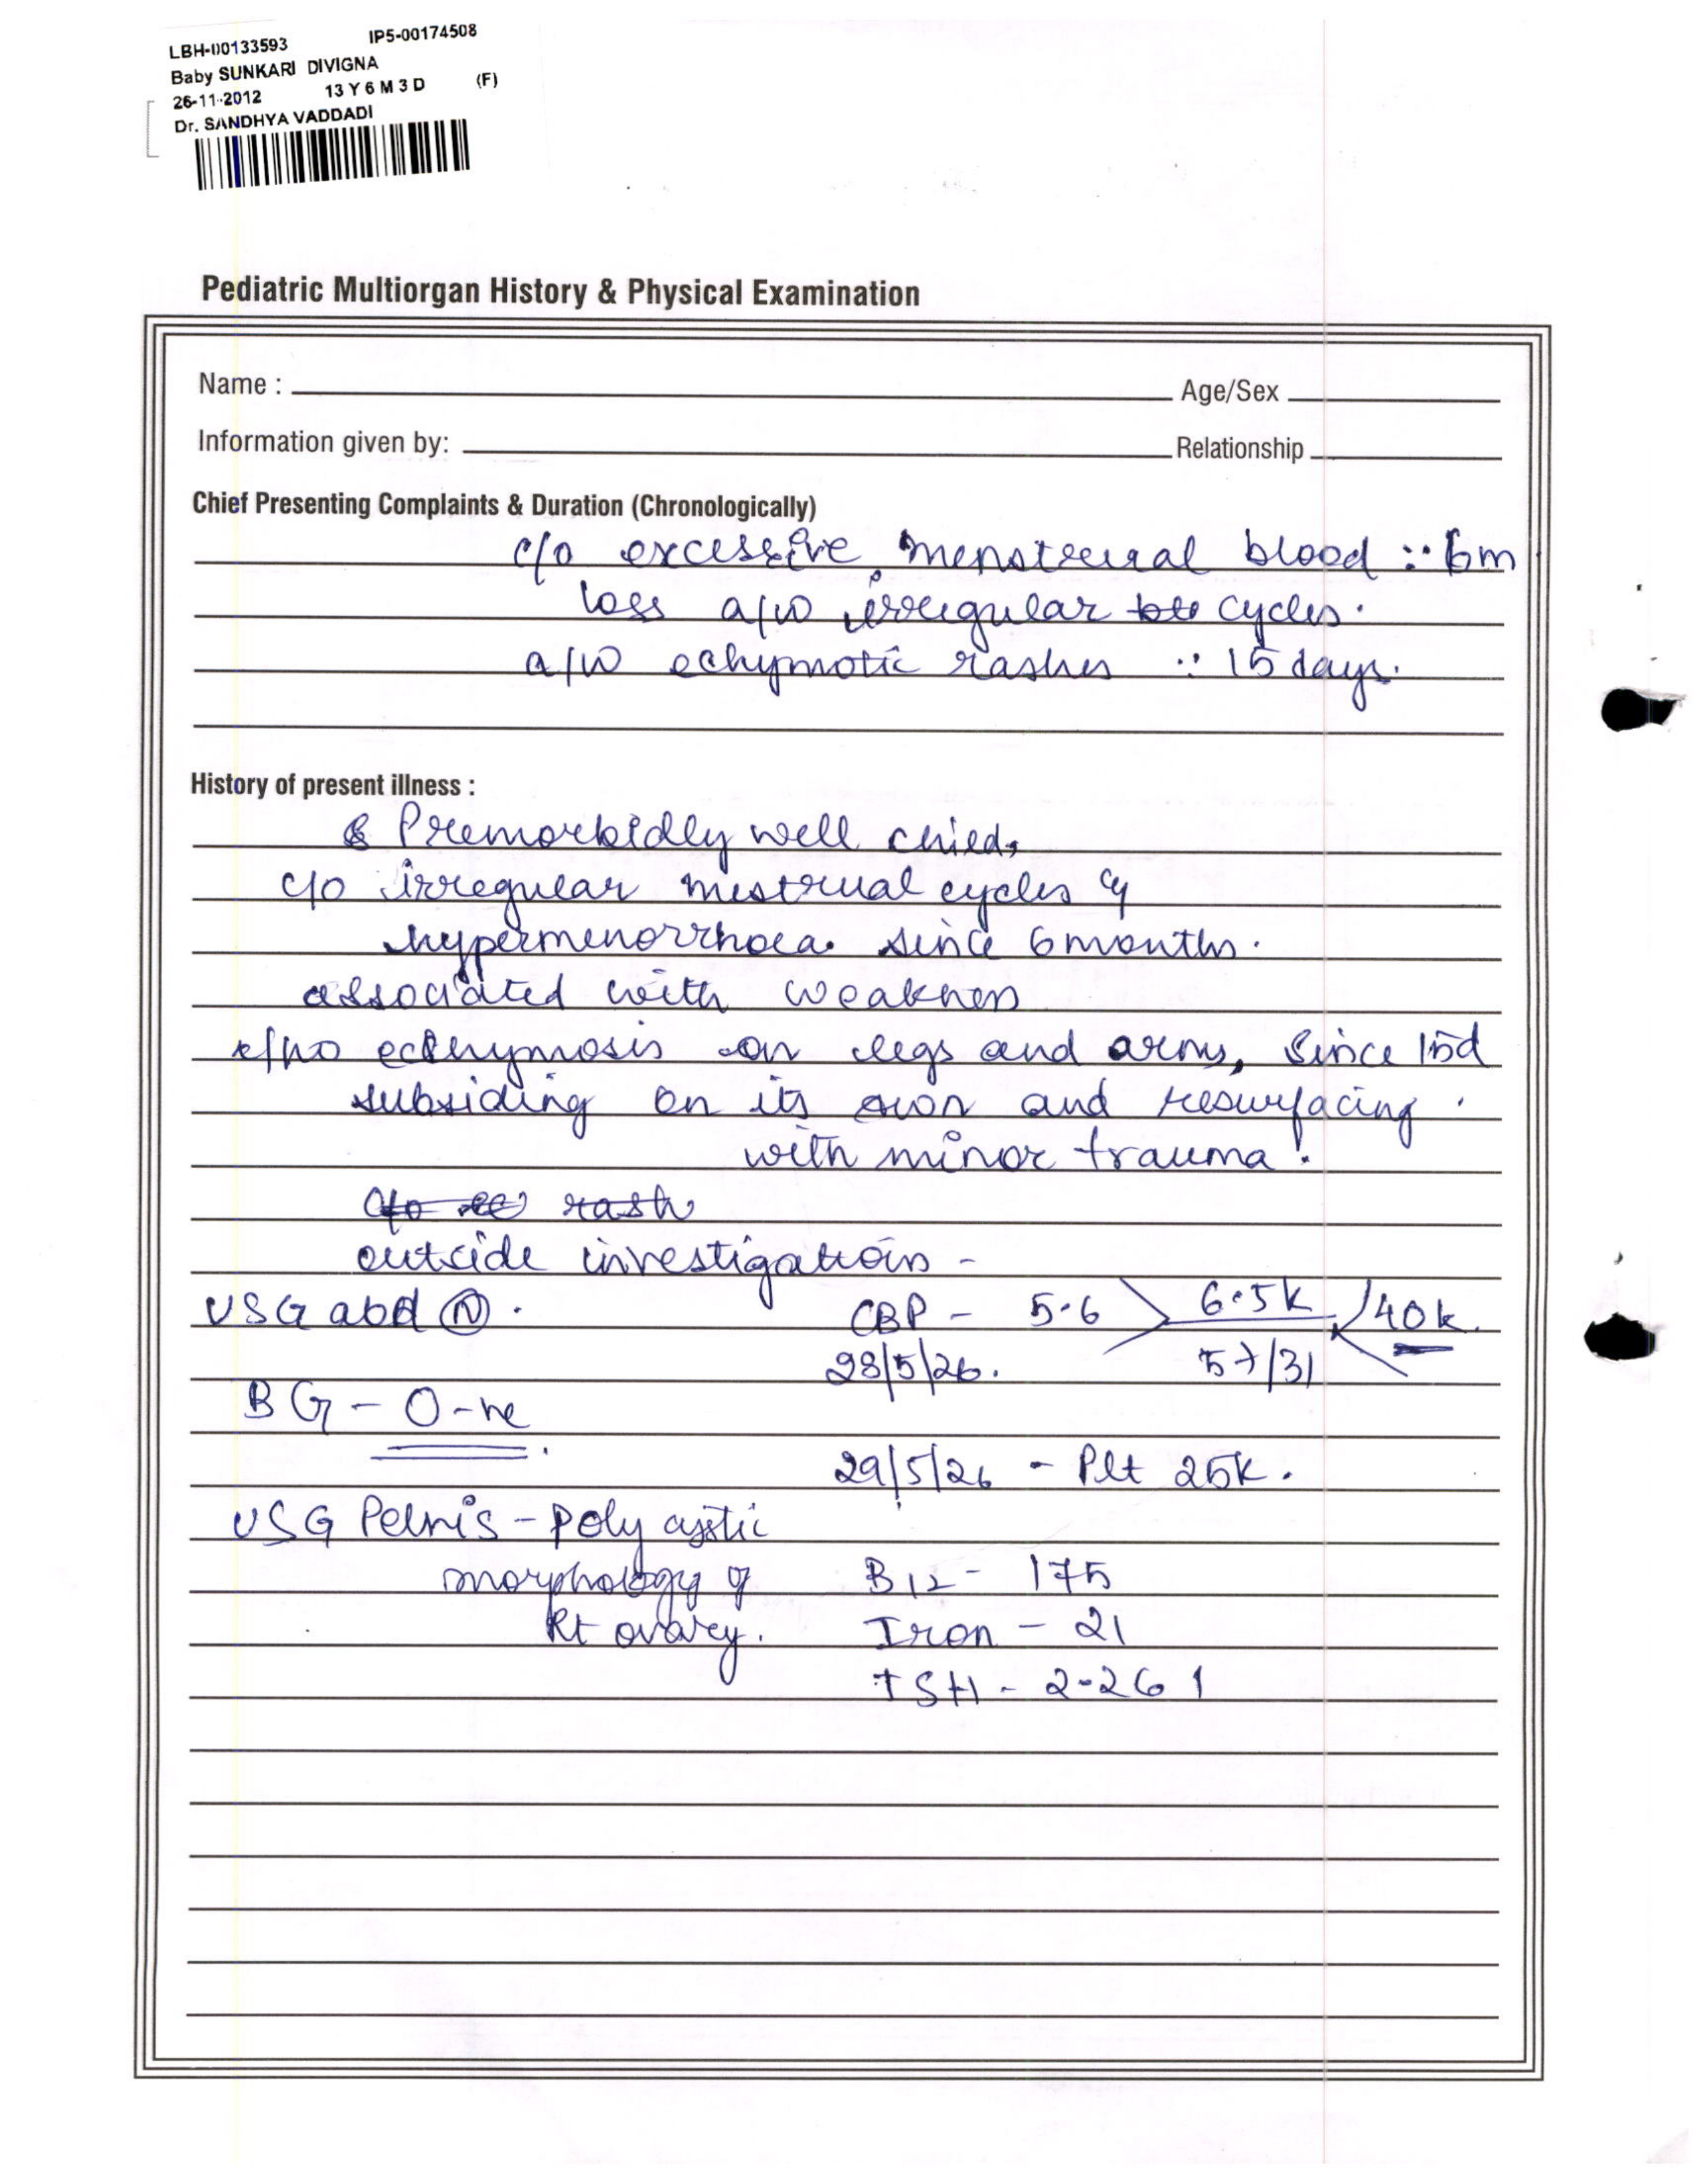 LBH-00133593 IP5-00174508
Baby SUNKARI DIVIGNA
26-11-2012 13 Y 6 M 3 D (F)
Dr. SANDHYA VADDADI
Pediatric Multiorgan History & Physical Examination
Name : Age/Sex
Information given by: Relationship
Chief Presenting Complaints & Duration (Chronologically)
c/o excessive menstrual blood :: 6m
loss a/w irregular cycles.
a/w echymotic rashes :: 15 days.
History of present illness :
Premorbidly well child,
c/o irregular mestrual cycles
hypermenorrhoea. since 6 months.
associated with weakness
ecchymosis on legs and arms, since 15d
subsiding on its own and resurfacing.
with minor trauma.
rash
outside investigations -
USG abd (N). CBP - 5.6 6.5k 40k.
28/5/26. 57/31
BG - O-ve
29/5/26 - Plt 25k.
USG Pelvis - poly cystic
morphology of B12 - 175
Rt ovary. Iron - 21
TSH - 2.261